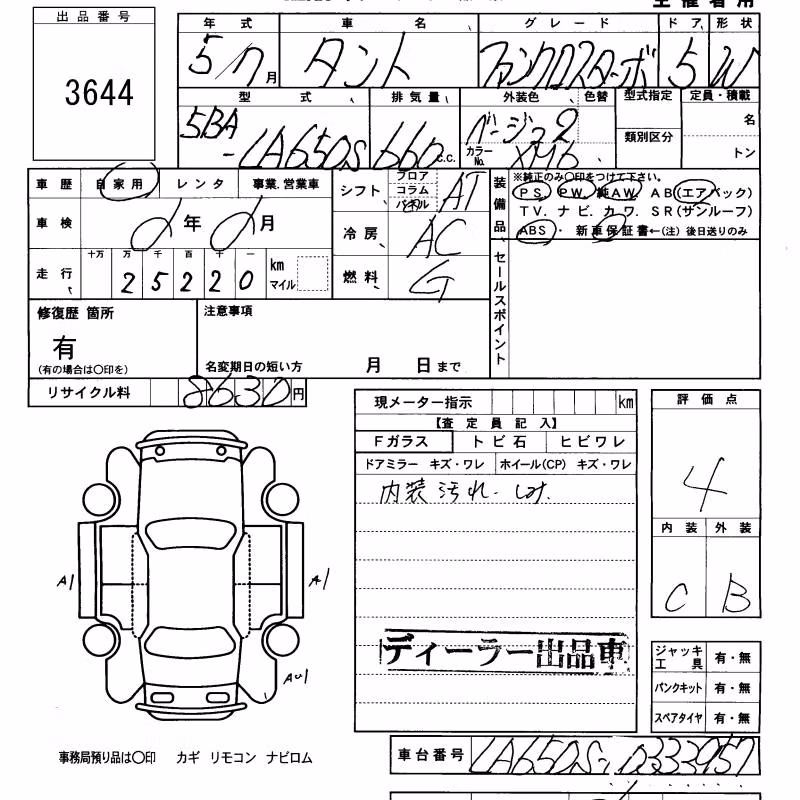 出品番号
3644
年式 車名 グレード ドア 形状
5/7月 タント ファンクロスターボ 5 W
型式 排気量 外装色 色替 型式指定 定員・積載
5BA-LA650S 660 c.c. ベージュ2 類別区分 名
カラーNo. XM6 トン
車歴 自家用 レンタ 事業.営業車
シフト フロア コラム パネル AT
装備品 ※純正のみ〇印をつけて下さい。
PS. PW. 純AW. AB(エアバック)
TV. ナビ. カワ. SR(サンルーフ)
ABS・ 新車保証書←(注) 後日送りのみ
車検 年 月
冷房 AC
走行 十万 万 千 百 十 一
25220 km マイル
燃料 G
セールスポイント
修復歴 箇所
有
(有の場合は〇印を)
注意事項
名変期日の短い方 月 日まで
リサイクル料 8630円
現メーター指示 km
【査定員記入】
Fガラス トビ石 ヒビワレ
ドアミラー キズ・ワレ ホイール(CP) キズ・ワレ
内装汚れ. シミ.
評価点
4
内装 外装
C B
A1
A1
AU1
ディーラー出品車
ジャッキ工具 有・無
パンクキット 有・無
スペアタイヤ 有・無
事務局預り品は〇印 カギ リモコン ナビロム
車台番号 LA650S-0333957